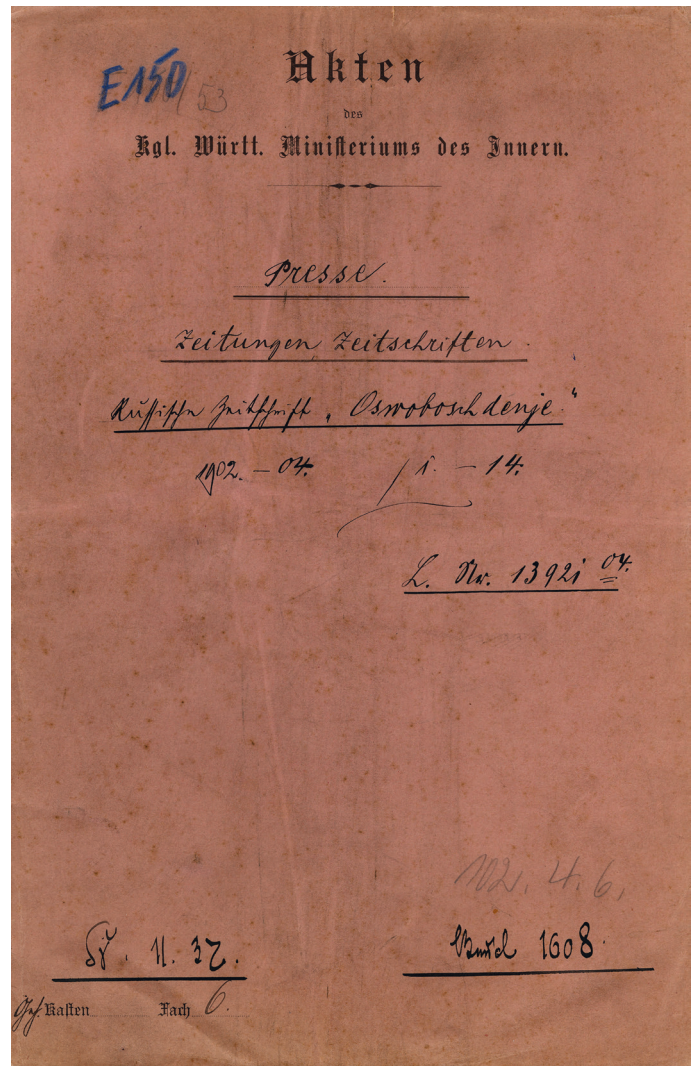 E 150 / 53
Akten
des
Kgl. Württ. Ministeriums des Innern.
Presse.
Zeitungen, Zeitschriften.
Russische Zeitschrift „Oswoboschdenje."
1902. – 04. 1. – 14.
L. Nr. 13921 04.
102. 4. 6.
11. 37.
Büschel 1608.
Geh. Kasten Fach 6.